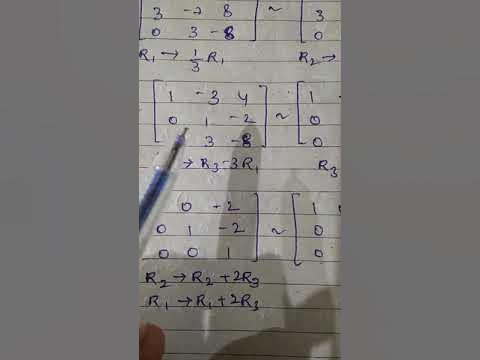 3 -2 8 ~ 3
0 3 -8 0
R₁ → 1/3 R₁ R₂ →
1 -3 4 1
0 1 -2 ~ 0
3 -8 0
→ R₃-3R₁ R₃
0 -2 1
0 1 -2 ~ 0
0 0 1 0
R₂ → R₂ + 2R₃
R₁ → R₁ + 2R₃